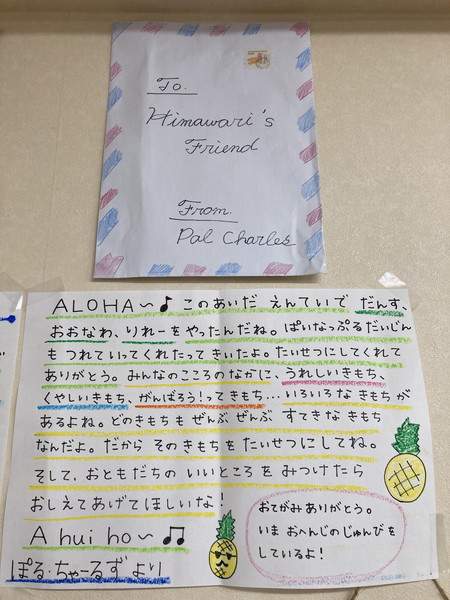 To.
Himawari's
Friend
From.
Pal Charles
ALOHA〜♪ このあいだ えんていで だんす、
おおなわ、りれーを やったんだね。ぱいなっぷるだいじん
も つれていってくれたって きいたよ。たいせつにしてくれて
ありがとう。みんなのこころのなかに、うれしいきもち、
くやしいきもち、がんばろう!ってきもち…いろいろな きもちが
あるよね。どのきもちも ぜんぶ ぜんぶ すてきな きもち
なんだよ。だから そのきもちを たいせつにしてね。
そして、おともだちの いいところを みつけたら
おしえてあげてほしいな!
A hui ho〜♫
ぽる・ちゃーるず より
おてがみ ありがとう。
いま おへんじの じゅんびを
しているよ!